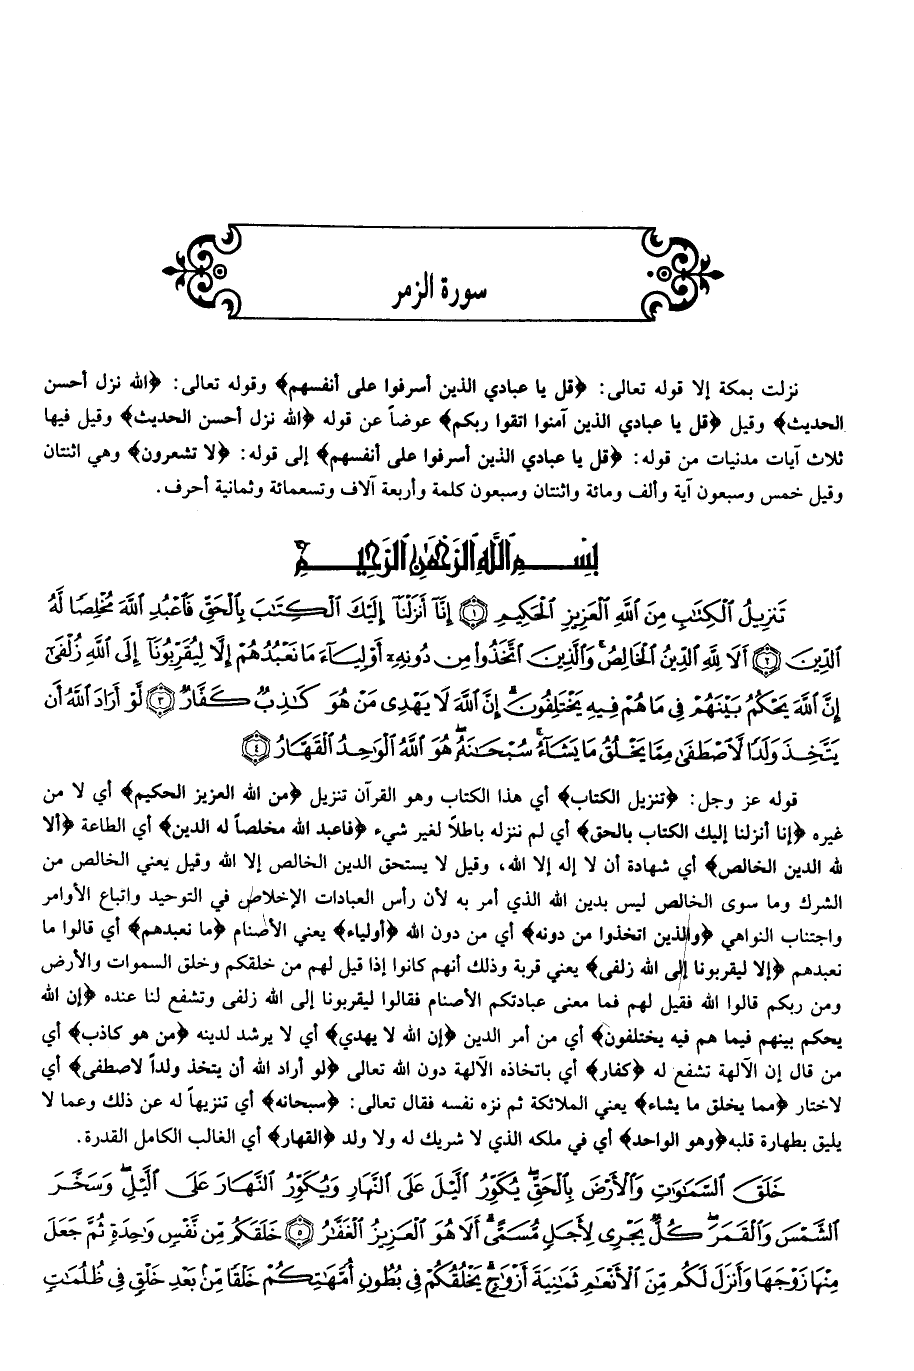 سورة الزمر
نزلت بمكة إلا قوله تعالى: ﴿قل يا عبادي الذين أسرفوا على أنفسهم﴾ وقوله تعالى: ﴿الله نزل أحسن
الحديث﴾ وقيل ﴿قل يا عبادي الذين آمنوا اتقوا ربكم﴾ عوضاً عن قوله ﴿الله نزل أحسن الحديث﴾ وقيل فيها
ثلاث آيات مدنيات من قوله: ﴿قل يا عبادي الذين أسرفوا على أنفسهم﴾ إلى قوله: ﴿لا تشعرون﴾ وهي اثنتان
وقيل خمس وسبعون آية وألف ومائة واثنتان وسبعون كلمة وأربعة آلاف وتسعمائة وثمانية أحرف.
بِسْمِ اللَّهِ الرَّحْمَٰنِ الرَّحِيمِ
تَنزِيلُ ٱلْكِتَٰبِ مِنَ ٱللَّهِ ٱلْعَزِيزِ ٱلْحَكِيمِ ﴿١﴾ إِنَّآ أَنزَلْنَآ إِلَيْكَ ٱلْكِتَٰبَ بِٱلْحَقِّ فَٱعْبُدِ ٱللَّهَ مُخْلِصًا لَّهُ
ٱلدِّينَ ﴿٢﴾ أَلَا لِلَّهِ ٱلدِّينُ ٱلْخَالِصُ ۚ وَٱلَّذِينَ ٱتَّخَذُوا۟ مِن دُونِهِۦٓ أَوْلِيَآءَ مَا نَعْبُدُهُمْ إِلَّا لِيُقَرِّبُونَآ إِلَى ٱللَّهِ زُلْفَىٰٓ
إِنَّ ٱللَّهَ يَحْكُمُ بَيْنَهُمْ فِى مَا هُمْ فِيهِ يَخْتَلِفُونَ ۗ إِنَّ ٱللَّهَ لَا يَهْدِى مَنْ هُوَ كَٰذِبٌ كَفَّارٌ ﴿٣﴾ لَّوْ أَرَادَ ٱللَّهُ أَن
يَتَّخِذَ وَلَدًا لَّٱصْطَفَىٰ مِمَّا يَخْلُقُ مَا يَشَآءُ ۚ سُبْحَٰنَهُۥ ۖ هُوَ ٱللَّهُ ٱلْوَٰحِدُ ٱلْقَهَّارُ ﴿٤﴾
قوله عز وجل: ﴿تنزيل الكتاب﴾ أي هذا الكتاب وهو القرآن تنزيل ﴿من الله العزيز الحكيم﴾ أي لا من
غيره ﴿إنا أنزلنا إليك الكتاب بالحق﴾ أي لم ننزله باطلاً لغير شيء ﴿فاعبد الله مخلصاً له الدين﴾ أي الطاعة ﴿ألا
لله الدين الخالص﴾ أي شهادة أن لا إله إلا الله، وقيل لا يستحق الدين الخالص إلا الله وقيل يعني الخالص من
الشرك وما سوى الخالص ليس بدين الله الذي أمر به لأن رأس العبادات الإخلاص في التوحيد واتباع الأوامر
واجتناب النواهي ﴿والذين اتخذوا من دونه﴾ أي من دون الله ﴿أولياء﴾ يعني الأصنام ﴿ما نعبدهم﴾ أي قالوا ما
نعبدهم ﴿إلا ليقربونا إلى الله زلفى﴾ يعني قربة وذلك أنهم كانوا إذا قيل لهم من خلقكم وخلق السموات والأرض
ومن ربكم قالوا الله فقيل لهم فما معنى عبادتكم الأصنام فقالوا ليقربونا إلى الله زلفى وتشفع لنا عنده ﴿إن الله
يحكم بينهم فيما هم فيه يختلفون﴾ أي من أمر الدين ﴿إن الله لا يهدي﴾ أي لا يرشد لدينه ﴿من هو كاذب﴾ أي
من قال إن الآلهة تشفع له ﴿كفار﴾ أي باتخاذه الآلهة دون الله تعالى ﴿لو أراد الله أن يتخذ ولداً لاصطفى﴾ أي
لاختار ﴿مما يخلق ما يشاء﴾ يعني الملائكة ثم نزه نفسه فقال تعالى: ﴿سبحانه﴾ أي تنزيهاً له عن ذلك وعما لا
يليق بطهارة قلبه﴿وهو الواحد﴾ أي في ملكه الذي لا شريك له ولا ولد ﴿القهار﴾ أي الغالب الكامل القدرة.
خَلَقَ ٱلسَّمَٰوَٰتِ وَٱلْأَرْضَ بِٱلْحَقِّ ۖ يُكَوِّرُ ٱلَّيْلَ عَلَى ٱلنَّهَارِ وَيُكَوِّرُ ٱلنَّهَارَ عَلَى ٱلَّيْلِ ۖ وَسَخَّرَ
ٱلشَّمْسَ وَٱلْقَمَرَ ۖ كُلٌّ يَجْرِى لِأَجَلٍ مُّسَمًّى ۗ أَلَا هُوَ ٱلْعَزِيزُ ٱلْغَفَّٰرُ ﴿٥﴾ خَلَقَكُم مِّن نَّفْسٍ وَٰحِدَةٍ ثُمَّ جَعَلَ
مِنْهَا زَوْجَهَا وَأَنزَلَ لَكُم مِّنَ ٱلْأَنْعَٰمِ ثَمَٰنِيَةَ أَزْوَٰجٍ ۚ يَخْلُقُكُمْ فِى بُطُونِ أُمَّهَٰتِكُمْ خَلْقًا مِّنۢ بَعْدِ خَلْقٍ فِى ظُلُمَٰتٍ